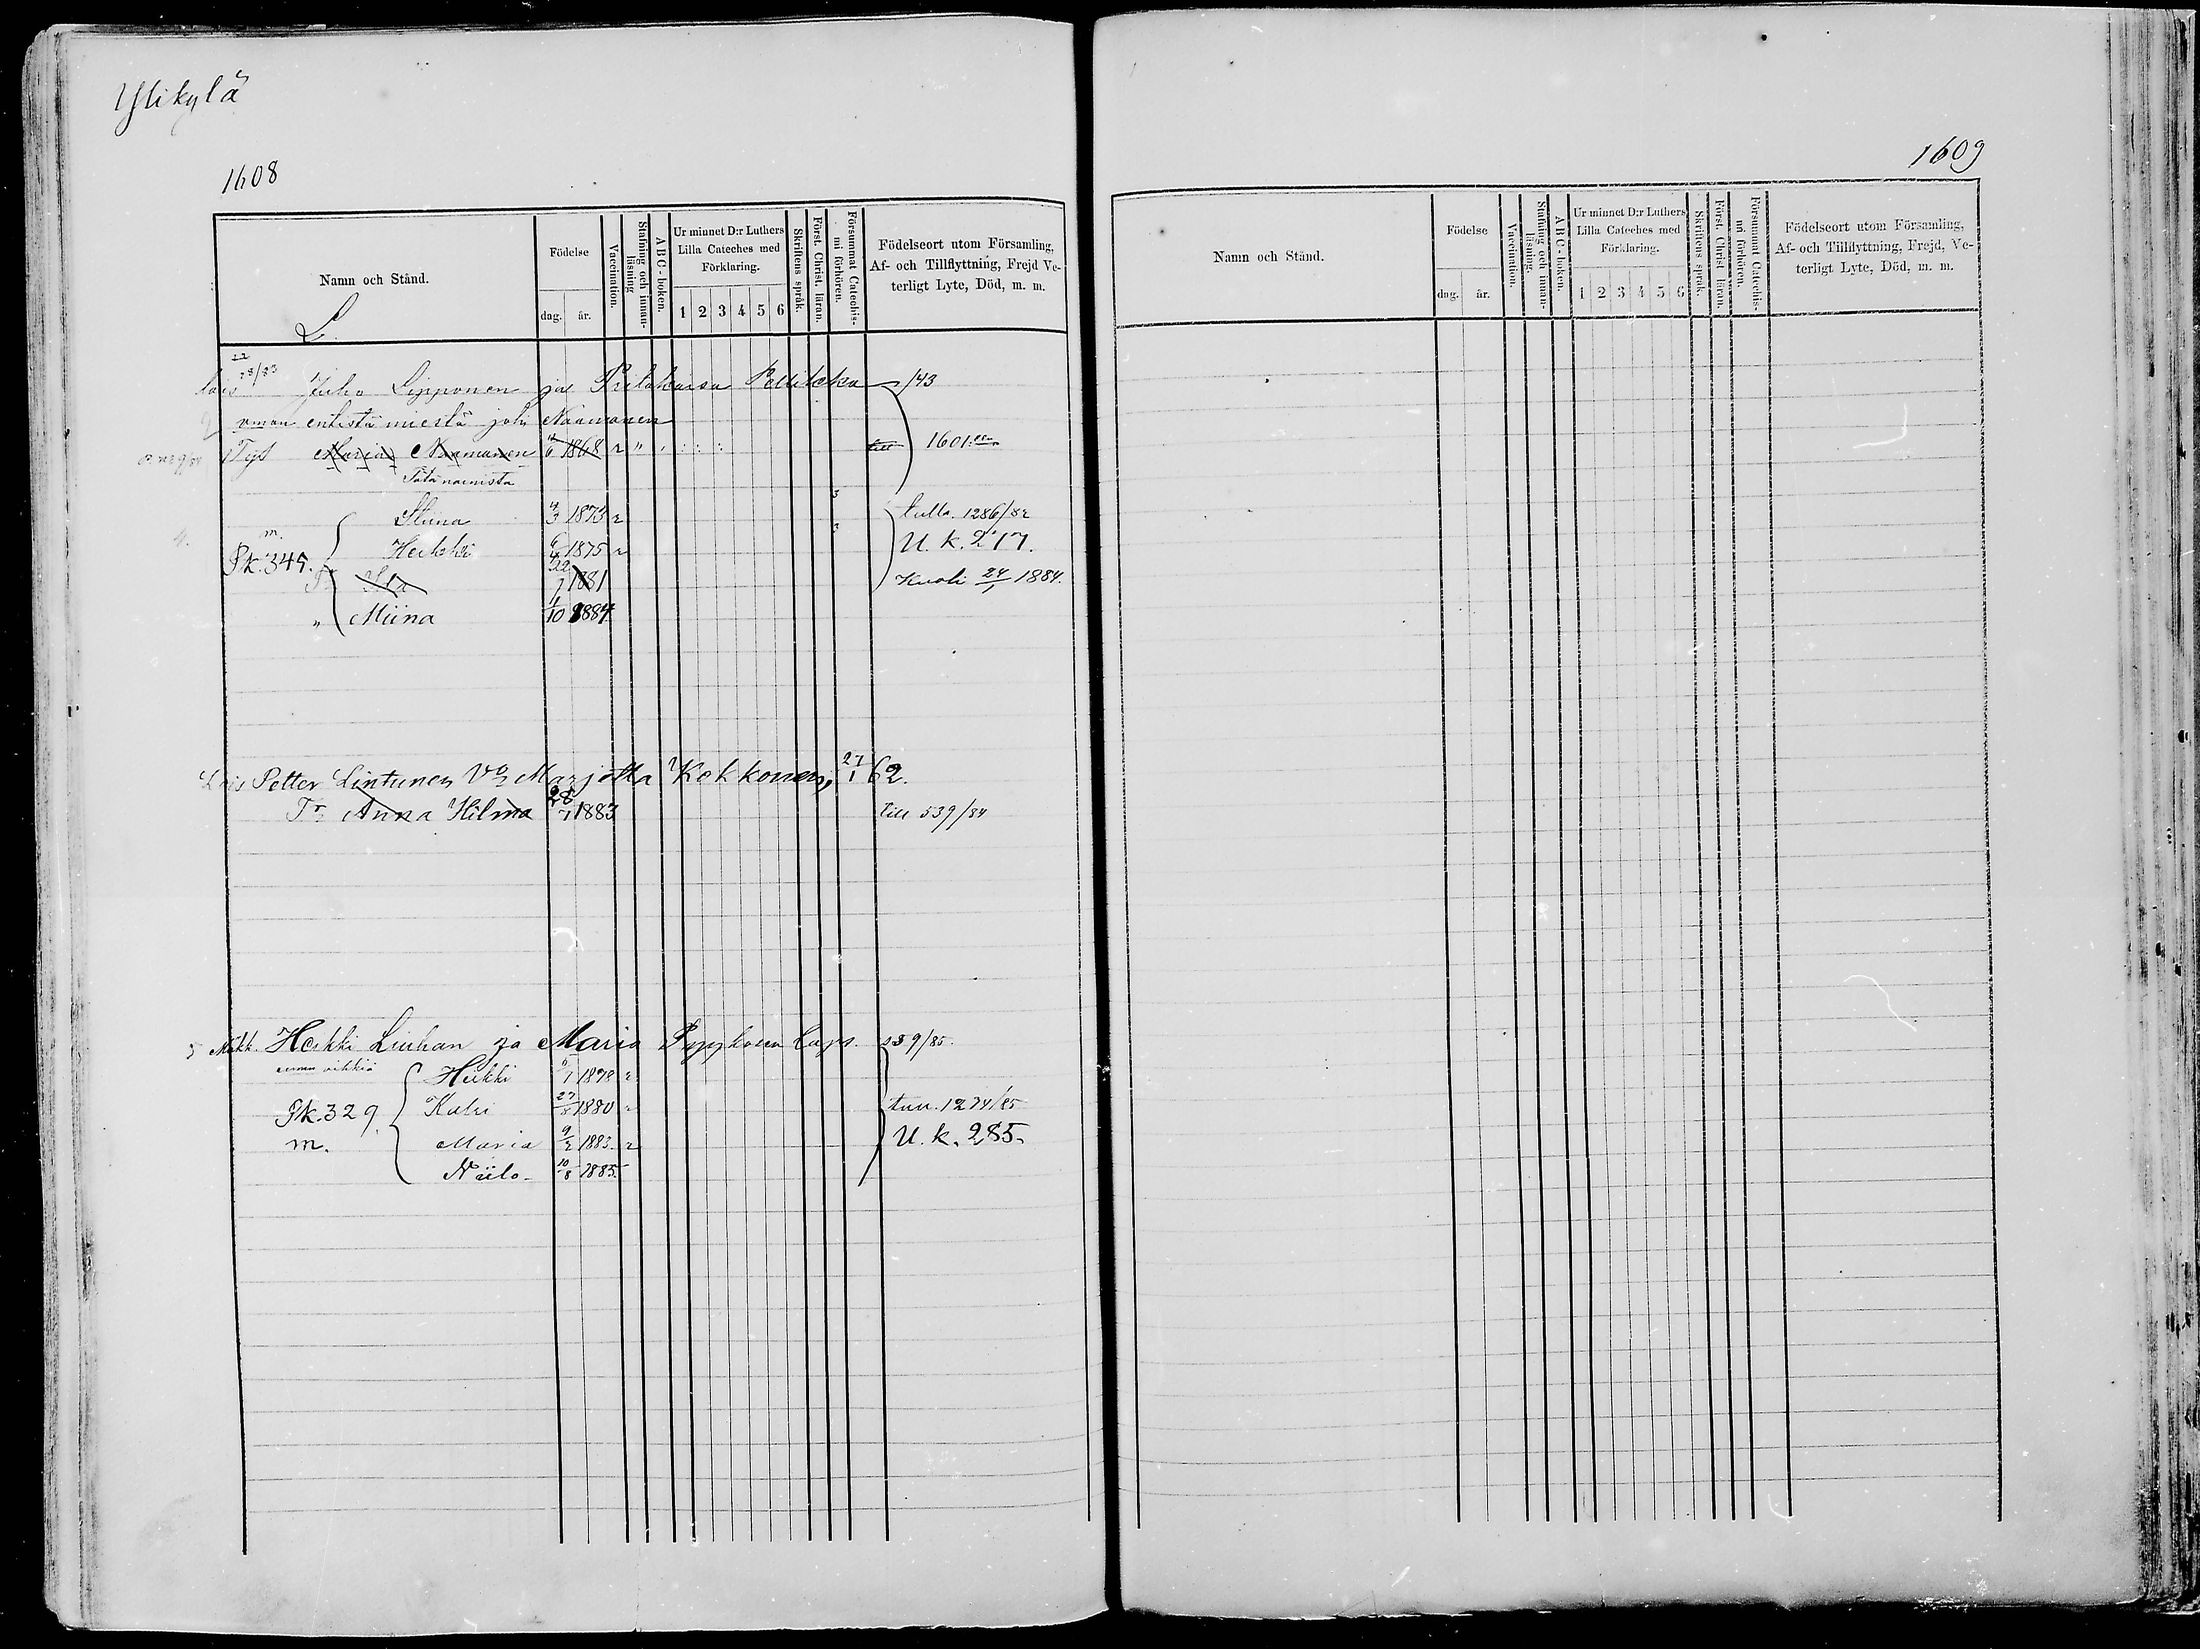 Ylikylä
1608
Namn och Stånd.
L.
Födelse
dag. år.
Vaccination.
Stafning och innanläsning
ABC-boken.
Ur minnet D:r Luthers Lilla Cateches med Förklaring.
1 2 3 4 5 6
Skriftens språk.
Först. Christ. läran.
Försummat Catechismi förhören.
Födelseort utom Församling, Af- och Tillflyttning, Frejd Veterligt Lyte, Död, m. m.
Juho Lipponen ja 143
vmon entistä miestä Naamanen
Tyt Maria Naamanen 1868 1601
Tätä naimista
Stiina 4/3 1873 r tull. 1286/82
m. Heikki 1875 r U. k. 217.
Pk. 345. Ida 22/7 1881 Kuoli 24/1 1884.
" Miina 1/10 1884
Lois Petter Lintunen Vo Marjotta Kokkonen, 27/1 62.
Tr Anna Hilma 28/7 1883 till 539/84
5 Mäkk. Heikki Liuhan ja Maria laps. 239/85.
Heikki 1878 r
Pk. 329. Katri 27/8 1880 tull. 1274/85
m. Maria 9/2 1883 r U. k. 285.
Niilo 10/8 1885.
1609
Namn och Stånd.
Födelse
dag. år.
Vaccination.
Stafning och innanläsning.
ABC-boken.
Ur minnet D:r Luthers Lilla Cateches med Förklaring.
1 2 3 4 5 6
Skriftens språk.
Först. Christ läran.
Försummat Catechismi förhören.
Födelseort utom Församling, Af- och Tillflyttning, Frejd, Veterligt Lyte, Död, m. m.